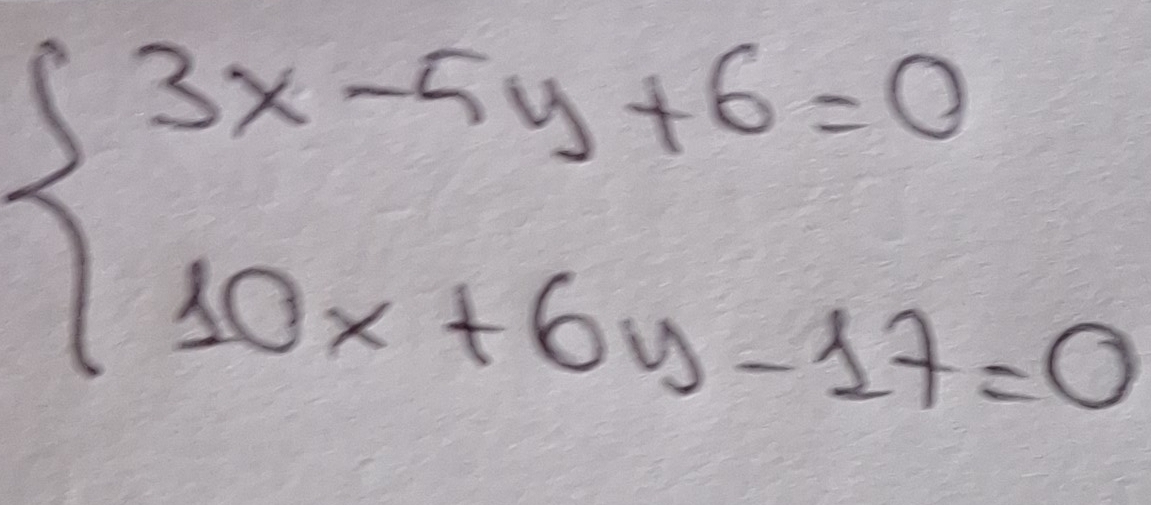 3x - 5y + 6 = 0
10x + 6y - 17 = 0